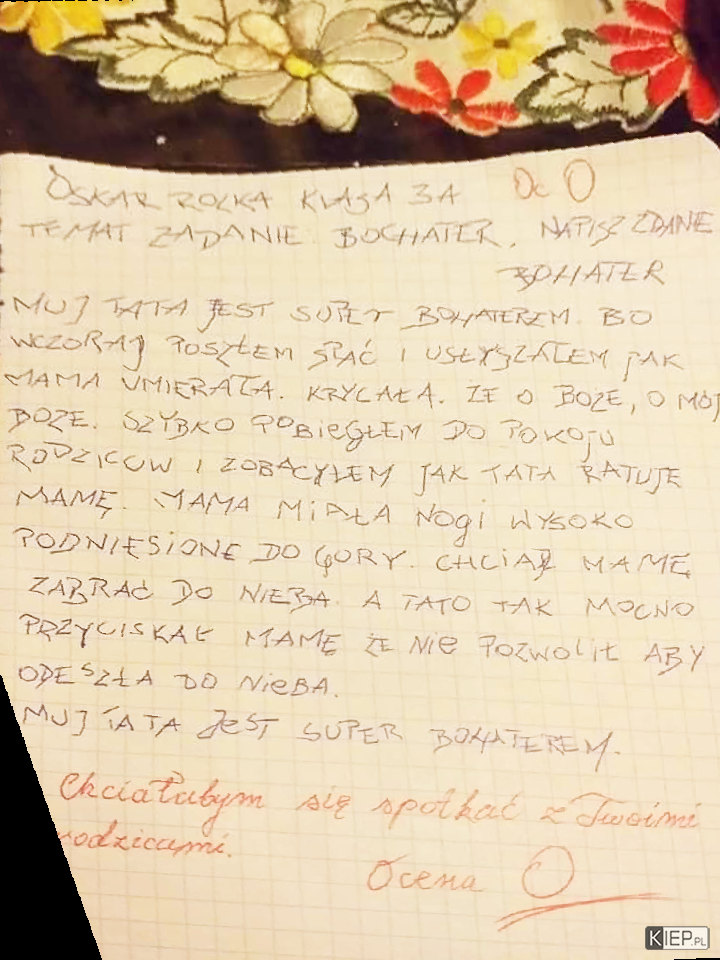 OSKAR ROLKA KLASA 3A Oc O
TEMAT ZADANIE BOCHATER. NAPISZ ZDANIE
BOHATER
MUJ TATA JEST SUPER BOHATEREM. BO
WCZORAJ POSZŁEM SPAĆ I USŁYSZAŁEM JAK
MAMA UMIERAŁA. KRYCAŁA. ŻE O BOŻE, O MÓJ
BOŻE. SZYBKO POBIEGŁEM DO POKOJU
RODZICÓW I ZOBACYŁEM JAK TATA RATUJE
MAMĘ. MAMA MIAŁA NOGI WYSOKO
PODNIESIONE DO GÓRY. CHCIAŁ MAMĘ
ZABRAĆ DO NIEBA. A TATO TAK MOCNO
PRZYCISKAŁ MAMĘ ŻE NIE POZWOLIŁ ABY
ODESZŁA DO NIEBA.
MUJ TATA JEST SUPER BOHATEREM.
Chciałabym się spotkać z Twoimi
rodzicami.
Ocena O
KIEP.PL